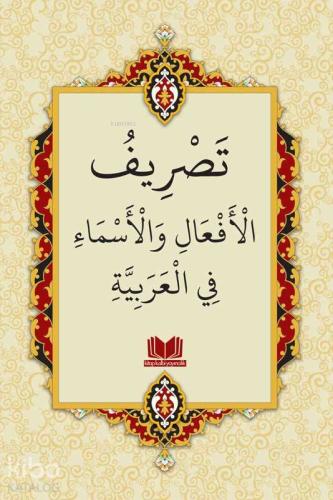 تَصْرِيفُ
الْأَفْعَالِ وَالْأَسْمَاءِ
فِي الْعَرَبِيَّةِ
kitap kalbi yayıncılık
kibo
KATALOG